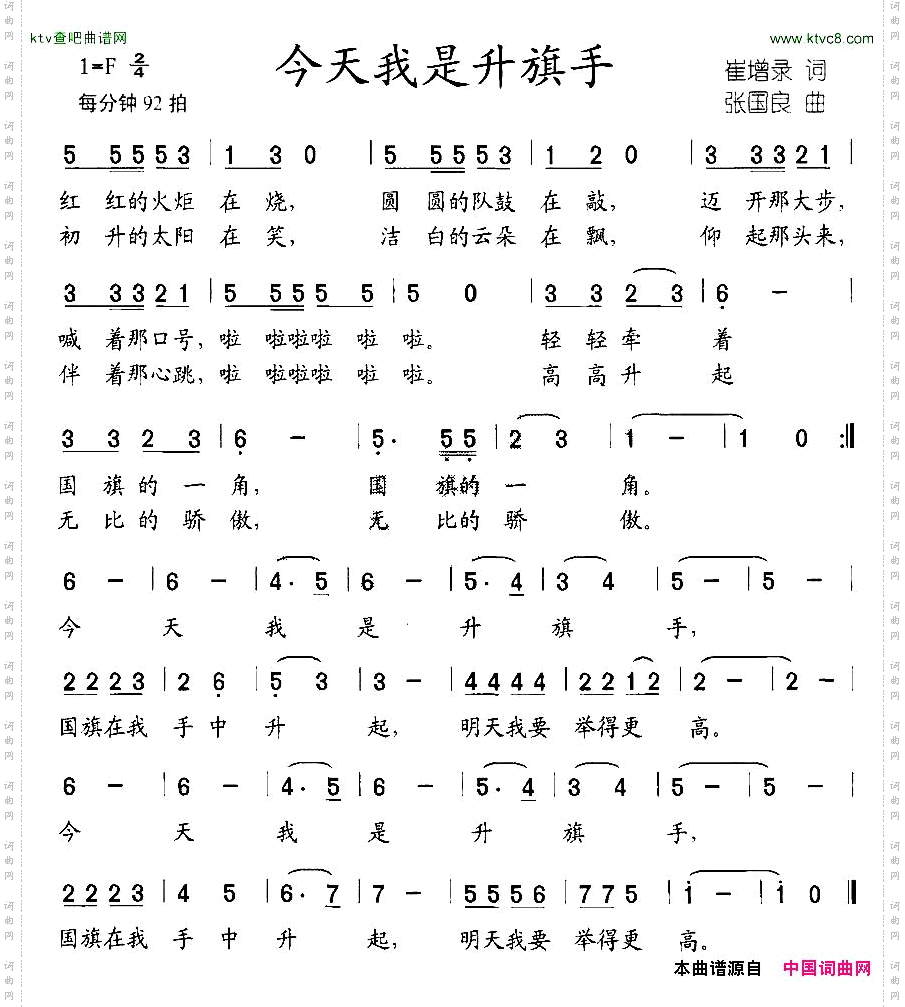 ktv查吧曲谱网
www.ktvc8.com
今天我是升旗手
1=F 2/4
每分钟 92 拍
崔增录 词
张国良 曲
5 5553 | 1 3 0 | 5 5553 | 1 2 0 | 3 3321 |
红 红的火炬 在 烧, 圆 圆的队鼓 在 敲, 迈 开那大步,
初 升的太阳 在 笑, 洁 白的云朵 在 飘, 仰 起那头来,
3 3321 | 5 555 5 5 | 5 0 | 3 3 2 3 | 6 - |
喊 着那口号, 啦 啦啦啦 啦 啦。 轻 轻 牵 着
伴 着那心跳, 啦 啦啦啦 啦 啦。 高 高 升 起
3 3 2 3 | 6 - | 5· 55 | 2 3 | 1 - | 1 0 :‖
国 旗 的 一 角, 国 旗的 一 角。
无 比 的 骄 傲, 无 比的 骄 傲。
6 - | 6 - | 4· 5 | 6 - | 5· 4 | 3 4 | 5 - | 5 - |
今 天 我 是 升 旗 手,
2223 | 2 6 | 5 3 | 3 - | 4444 | 2212 | 2 - | 2 - |
国旗在我 手 中 升 起, 明天我要 举得更 高。
6 - | 6 - | 4· 5 | 6 - | 5· 4 | 3 4 | 5 - | 5 - |
今 天 我 是 升 旗 手,
2223 | 4 5 | 6· 7 | 7 - | 5556 | 775 | 1 - | 1 0 ‖
国旗在我 手 中 升 起, 明天我要 举得更 高。
本曲谱源自 中国词曲网